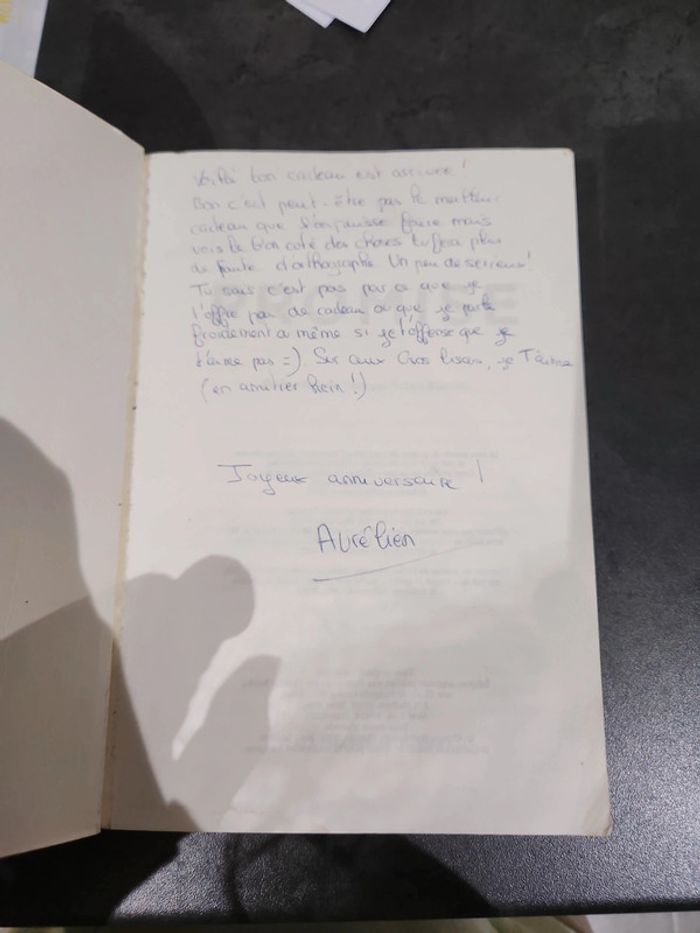 Voilà ton cadeau est arrivée !
Bon c'est peut-être pas le meilleur
cadeau que l'on puisse faire mais
vois le bon coté des choses tu fera plus
de faute d'orthographe. Un peu de serieux !
Tu sais c'est pas par ce que je
t'offre pas de cadeau ou que je parle
froidement a même si je t'offense que je
t'aime pas =) Sur ceux Gros bisous, je T'aime
(en amitier hein !).
Joyeux anniversaire !
Aurélien